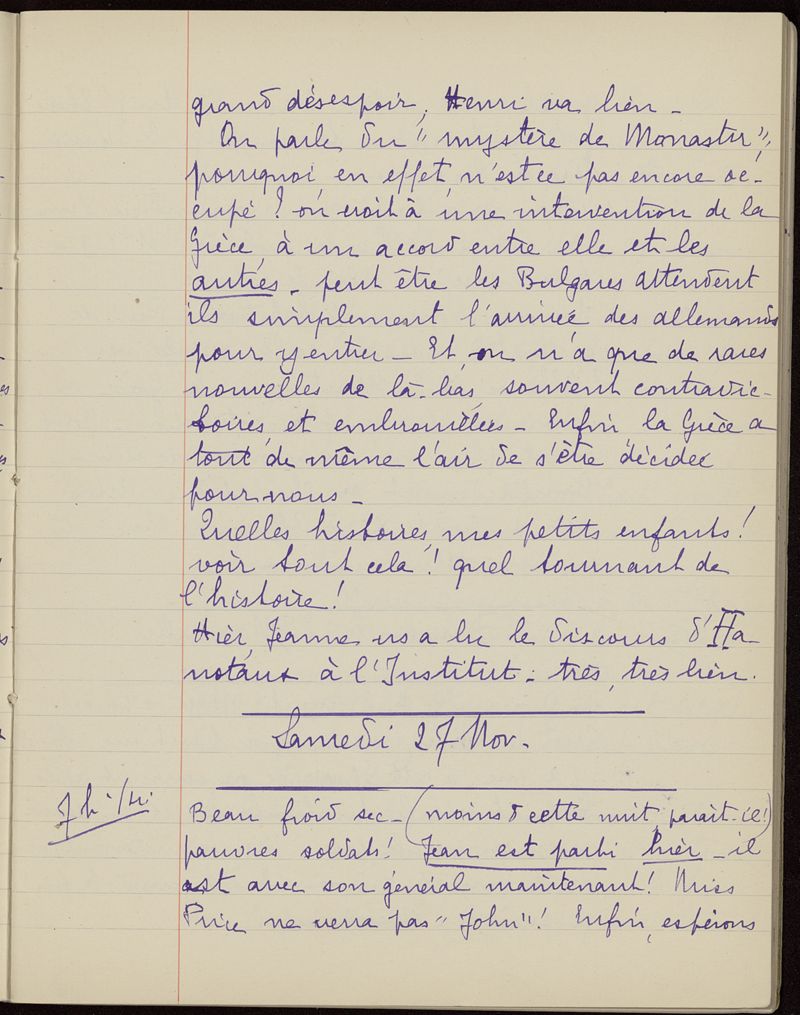 grand désespoir, Henri va bien –
On parle du "mystère de Monastir",
pourquoi, en effet, n'est ce pas encore oc-
cupé ? on croit à une intervention de la
Grèce, à un accord entre elle et les
autres – peut être les Bulgares attendent
ils simplement l'arrivée des allemands
pour y entrer – Et, on n'a que de rares
nouvelles de là-bas, souvent contradic-
toires, et embrouillées – Enfin la Grèce a
tout de même l'air de s'être décidée
pour nous –
Quelles histoires, mes petits enfants !
voir tout cela ! quel tournant de
l'histoire !
Hier, Jeanne ns a lu le discours d'Ha-
notaux à l'Institut – très, très bien.
Samedi 27 Nov.
7h 1/4.
Beau froid sec – (moins 8 cette nuit, paraît-il !)
pauvres soldats ! Jean est parti hier – il
est avec son général maintenant ! Miss
Price ne verra pas "John" ! Enfin, espérons